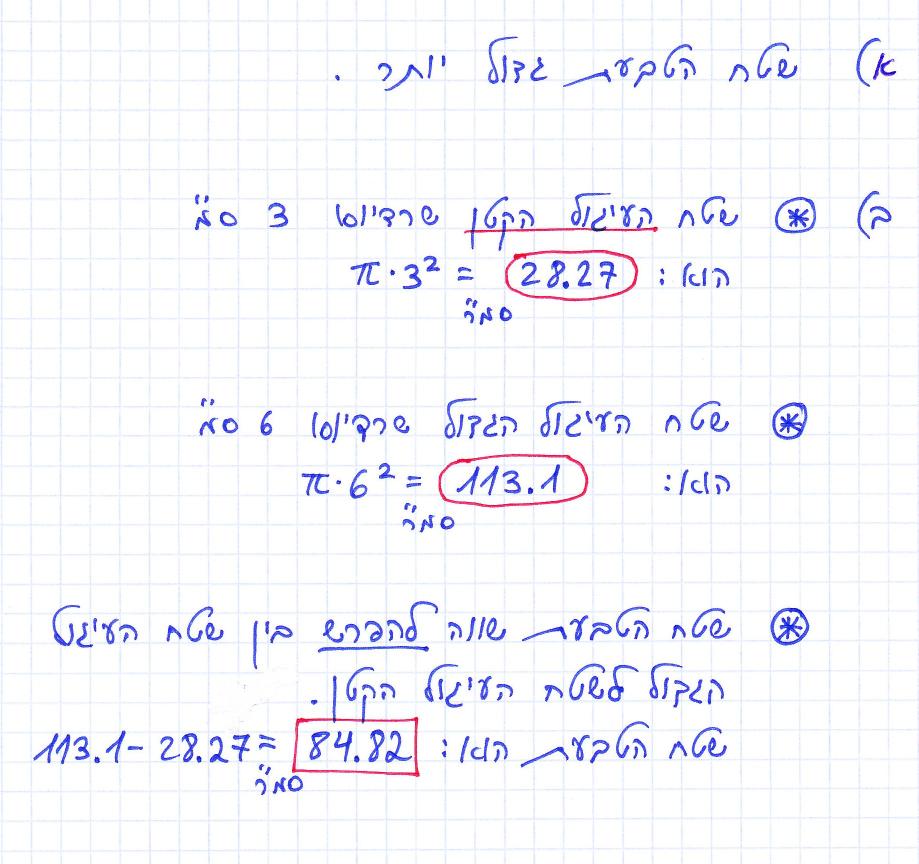 א) שטח הטבעת גדול יותר.
ב) * שטח העיגול הקטן שרדיוסו 3 ס"מ
הוא: 28.27 = π·3²
סמ"ר
* שטח העיגול הגדול שרדיוסו 6 ס"מ
הוא: 113.1 = π·6²
סמ"ר
* שטח הטבעת שווה להפרש בין שטח העיגול
הגדול לשטח העיגול הקטן.
שטח הטבעת הוא: 84.82 = 113.1 - 28.27
סמ"ר